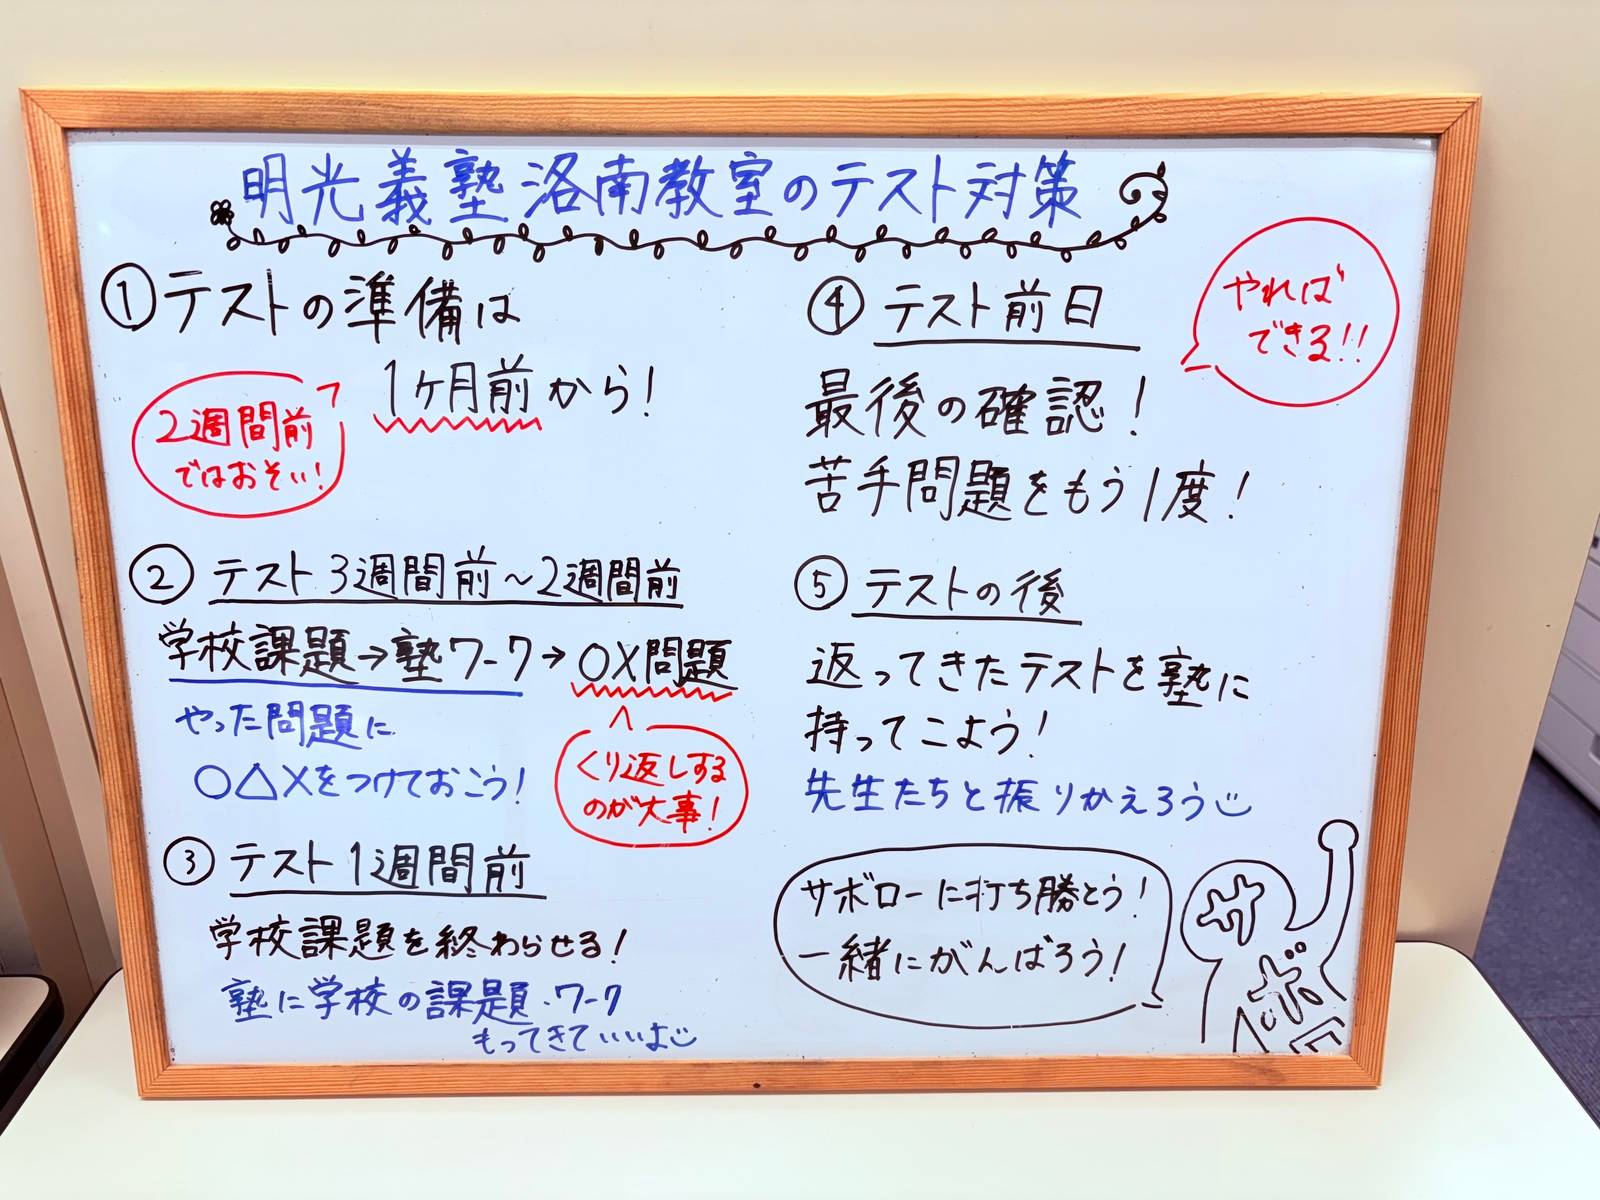 明光義塾洛南教室のテスト対策
①テストの準備は
1ヶ月前から!
2週間前
ではおそい!
②テスト3週間前~2週間前
学校課題→塾ワーク→○×問題
やった問題に
○△×をつけておこう!
くり返しする
のが大事!
③テスト1週間前
学校課題を終わらせる!
塾に学校の課題・ワーク
もってきていいよ
④テスト前日
最後の確認!
苦手問題をもう1度!
やれば
できる!!
⑤テストの後
返ってきたテストを塾に
持ってこよう!
先生たちと振りかえろう
サボローに打ち勝とう!
一緒にがんばろう!
サ
ボ